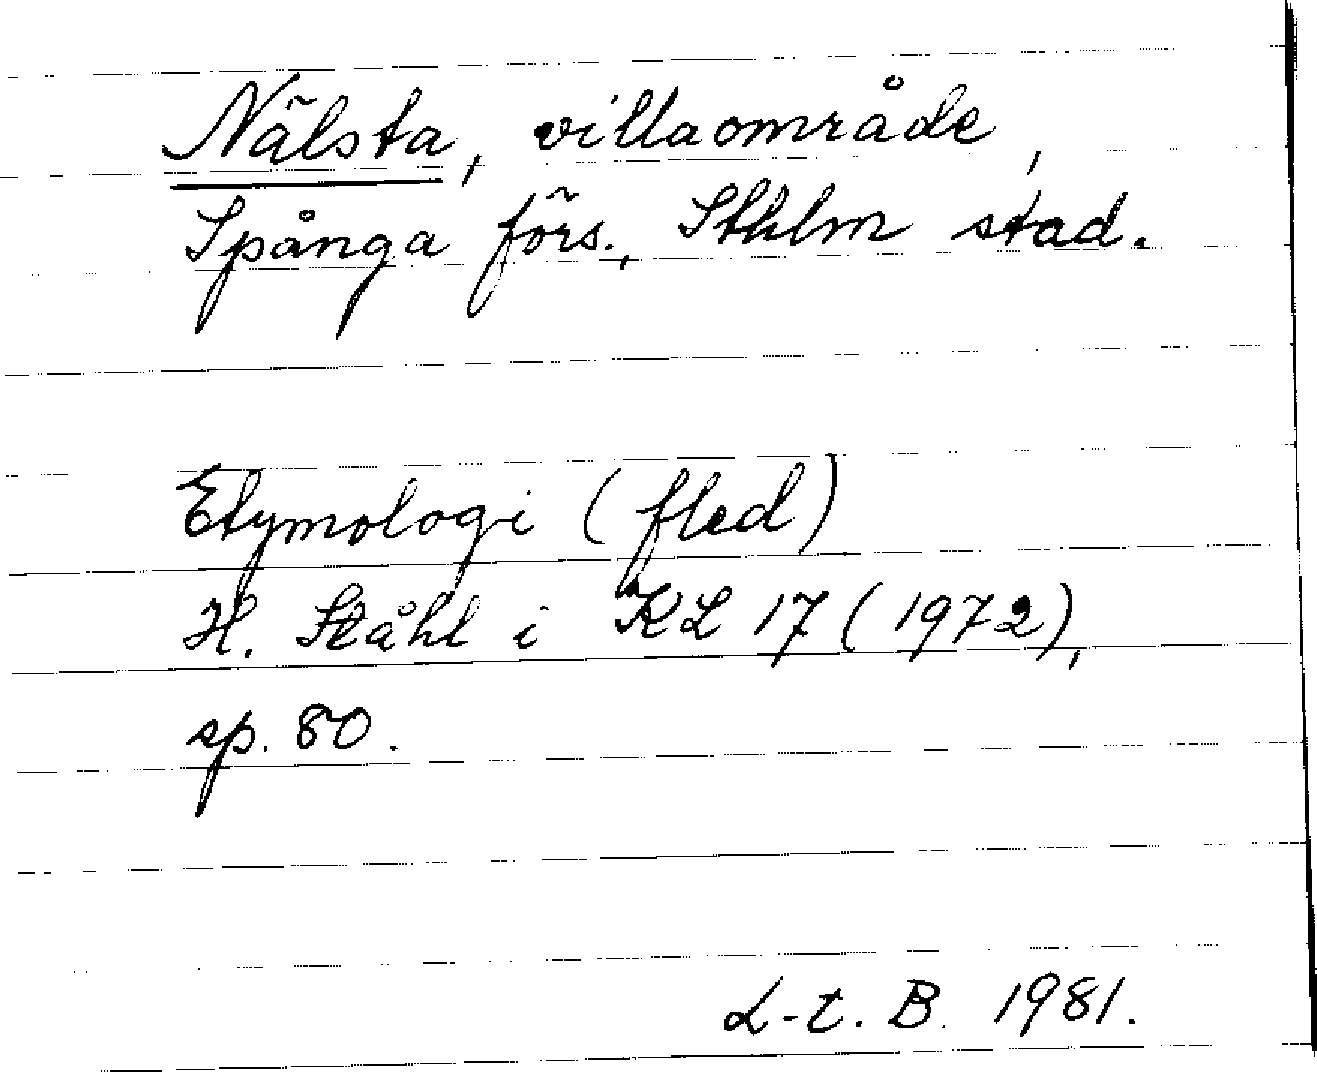 Nälsta, villaområde,
Spånga förs., Sthlm stad.
Etymologi (fled)
H. Ståhl i KL 17 (1972),
sp. 80.
L-t. B. 1981.